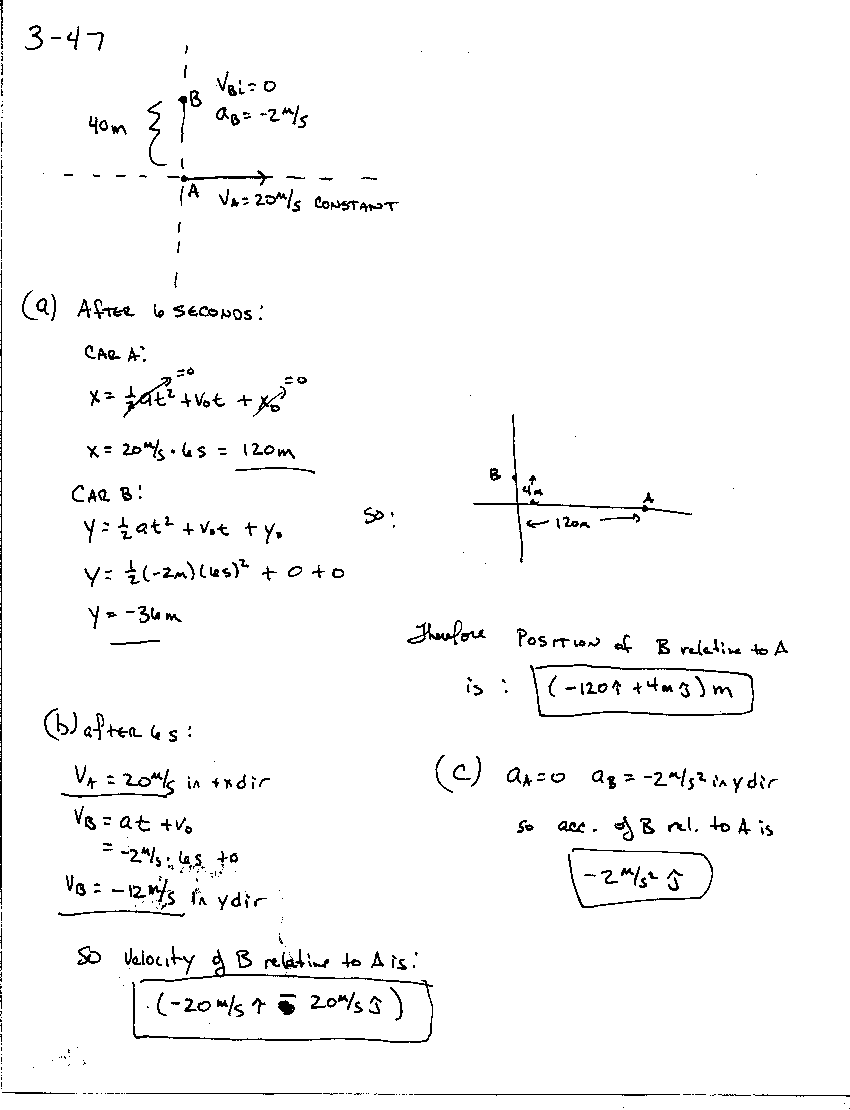 3-47
V_Bi = 0
B
a_B = -2 m/s
40m
A
V_A = 20 m/s CONSTANT
(a) AFTER 6 SECONDS:
CAR A:
=0 =0
x = ½at² + V₀t + x₀
x = 20 m/s · 6s = 120m
CAR B:
y = ½at² + V₀t + y₀
y = ½(-2m)(6s)² + 0 + 0
y = -36m
so:
B 4m A
120m
Therefore POSITION of B relative to A
is: (-120 î + 4m ĵ) m
(b) after 6 s:
V_A = 20 m/s in +x dir
V_B = at + V₀
= -2 m/s · 6s + 0
V_B = -12 m/s in y dir
So Velocity of B relative to A is:
(-20 m/s î - 20 m/s ĵ)
(c) a_A = 0 a_B = -2 m/s² in y dir
so acc. of B rel. to A is
-2 m/s² ĵ